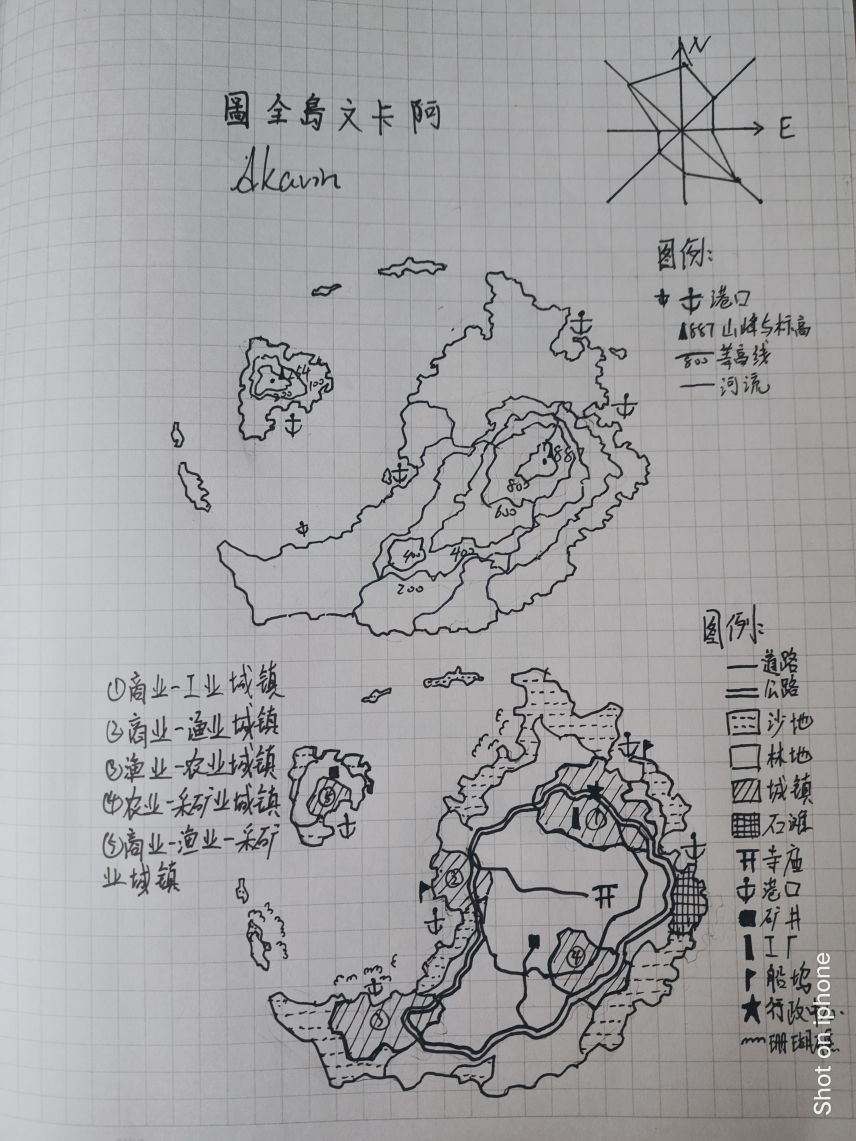 圖全島文卡阿
Akavin
N
E
图例:
港口
887 山峰与标高
800 等高线
河流
254
100
200
887
800
600
400
400
200
①商业-工业城镇
②商业-渔业城镇
③渔业-农业城镇
④农业-采矿业城镇
⑤商业-渔业-采矿
业城镇
图例:
道路
公路
沙地
林地
城镇
石滩
寺庙
港口
矿井
工厂
船坞
行政中心
珊瑚礁
①
②
③
④
⑤
Shot on iphone